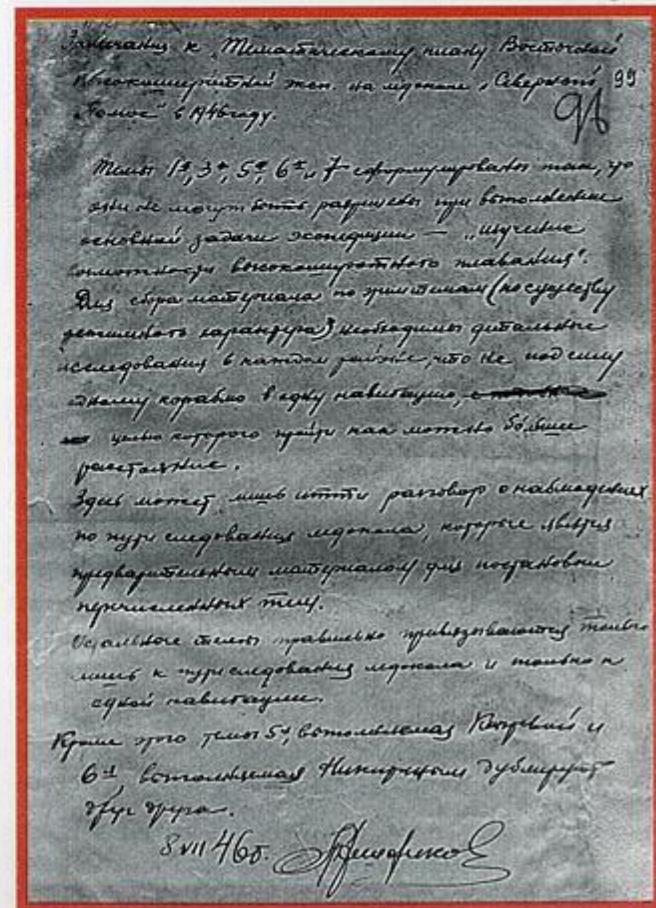 Замечания к „Тематическому плану Восточной
Высокоширотной эксп. на ледоколе „Северный 99
Полюс“ в 1946 году. 98
Темы 1ª, 3ª, 5ª, 6ª и 7 сформулированы так, что
они не могут быть разрешены при выполнении
основной задачи экспедиции — „изучение
возможности высокоширотного плавания“.
Для сбора материала по этим темам (по существу
характера) необходимы детальные
исследования в каждом районе, что не под силу
одному кораблю в одну навигацию,
целью которого пройти как можно больше
расстояние.
Здесь может лишь итти разговор о наблюдениях
по пути следования ледокола, которые явятся
предварительным материалом для постановки
перечисленных тем.
Остальные темы правильно привязываются только
лишь к пути следования ледокола и только к
одной навигации.
Кроме этого темы 5ª, выполняемая и
6ª выполняемая Никитиным дублируют
друг друга.
8 VII 46г.